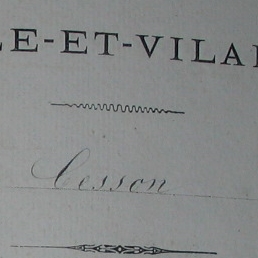 LE-ET-VILAI
Cesson